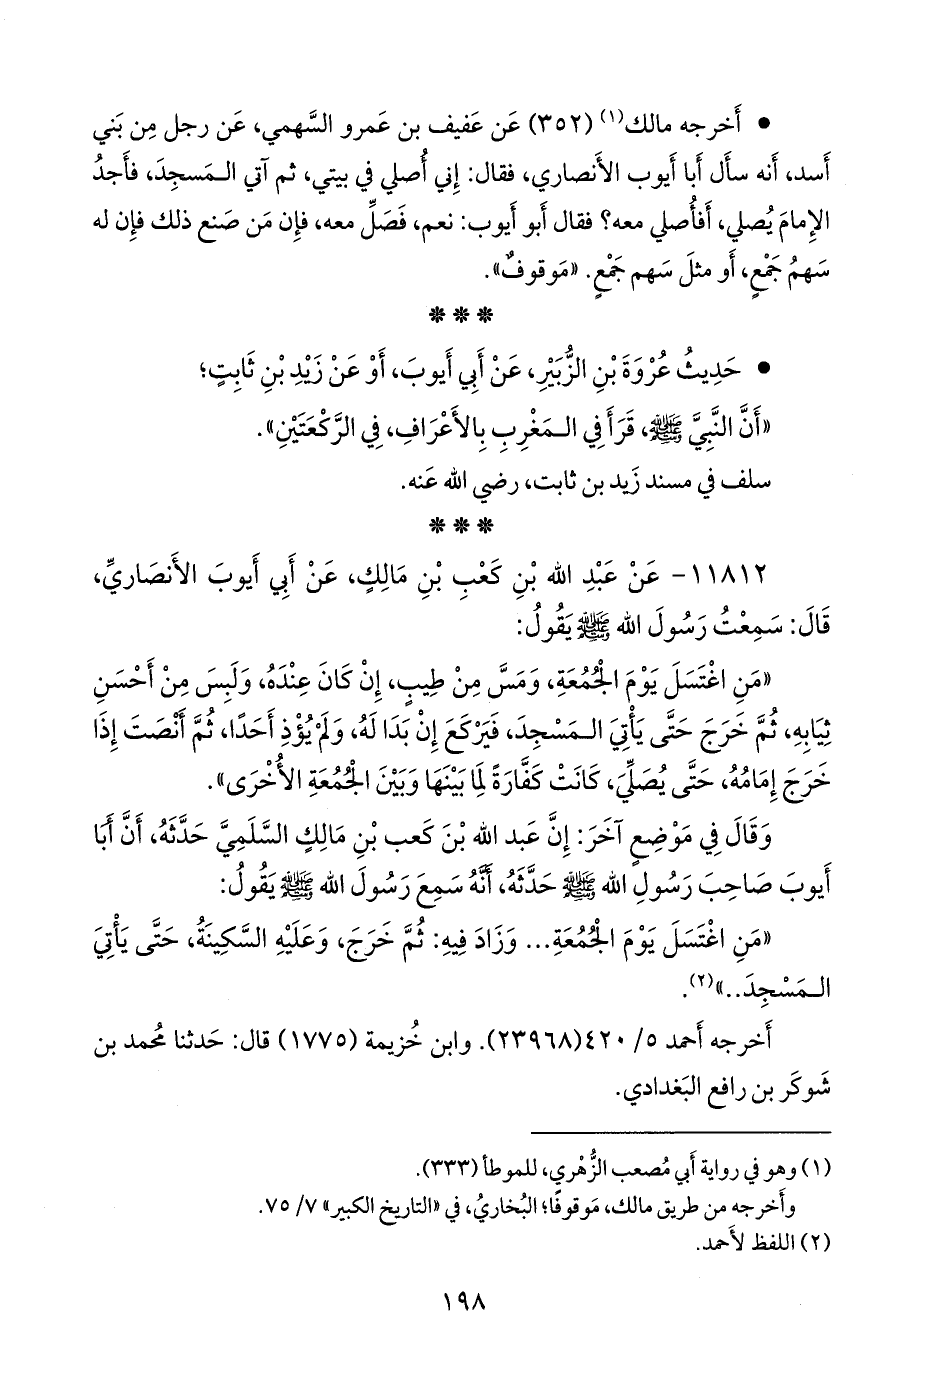 • أَخرجه مالك(١) (٣٥٢) عَن عَفيف بن عَمرو السَّهمي، عَن رجل مِن بَني
أَسد، أَنه سأَل أَبا أَيوب الأَنصاري، فقال: إِني أُصلي في بيتي، ثم آتي المَسجِدَ، فأَجدُ
الإِمامَ يُصلي، أَفأُصلي معه؟ فقال أَبو أَيوب: نعم، فَصَلِّ معه، فإِن مَن صَنع ذلك فإِن له
سَهمُ جَمْعٍ، أَو مثلَ سَهم جَمْعٍ. «مَوقوفٌ».
* * *
• حَدِيثُ عُرْوَةَ بْنِ الزُّبَيْرِ، عَنْ أَبِي أَيوبَ، أَوْ عَنْ زَيْدِ بْنِ ثَابِتٍ؛
«أَنَّ النَّبِيَّ ﷺ، قَرَأَ فِي المَغْرِبِ بِالأَعْرَافِ، فِي الرَّكْعَتَيْنِ».
سلف في مسند زَيد بن ثابت، رضي الله عَنه.
* * *
١١٨١٢- عَنْ عَبْدِ الله بْنِ كَعْبِ بْنِ مَالِكٍ، عَنْ أَبِي أَيوبَ الأَنصَارِيِّ،
قَالَ: سَمِعْتُ رَسُولَ الله ﷺ يَقُولُ:
«مَنِ اغْتَسَلَ يَوْمَ الجُمُعَةِ، وَمَسَّ مِنْ طِيبٍ، إِنْ كَانَ عِنْدَهُ، وَلَبِسَ مِنْ أَحْسَنِ
ثِيَابِهِ، ثُمَّ خَرَجَ حَتَّى يَأْتِيَ المَسْجِدَ، فَيَرْكَعَ إِنْ بَدَا لَهُ، وَلَمْ يُؤْذِ أَحَدًا، ثُمَّ أَنْصَتَ إِذَا
خَرَجَ إِمَامُهُ، حَتَّى يُصَلِّيَ، كَانَتْ كَفَّارَةً لِمَا بَيْنَهَا وَبَيْنَ الجُمُعَةِ الأُخْرَى».
وَقَالَ فِي مَوْضِعٍ آخَرَ: إِنَّ عَبد الله بْنَ كَعب بْنِ مَالِكٍ السَّلَمِيَّ حَدَّثَهُ، أَنَّ أَبَا
أَيوبَ صَاحِبَ رَسُولِ الله ﷺ حَدَّثَهُ، أَنَّهُ سَمِعَ رَسُولَ الله ﷺ يَقُولُ:
«مَنِ اغْتَسَلَ يَوْمَ الجُمُعَةِ... وَزَادَ فِيهِ: ثُمَّ خَرَجَ، وَعَلَيْهِ السَّكِينَةُ، حَتَّى يَأْتِيَ
المَسْجِدَ..»(٢).
أَخرجه أَحمد ٥/ ٤٢٠(٢٣٩٦٨). وابن خُزيمة (١٧٧٥) قال: حَدثنا مُحمد بن
شَوكَر بن رافع البَغدادي.
(١) وهو في رواية أَبي مُصعب الزُّهْري، للموطأ (٣٣٣).
وأَخرجه من طريق مالك، مَوقوفًا؛ البُخاريُ، في «التاريخ الكبير» ٧/ ٧٥.
(٢) اللفظ لأَحمد.
١٩٨